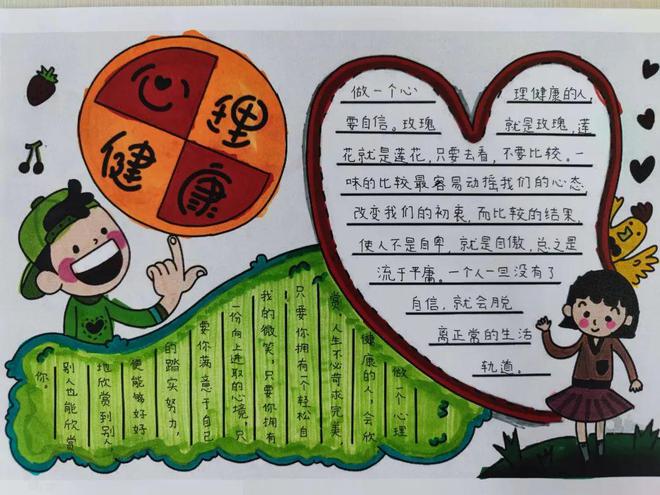 心理
健康
做一个心
理健康的人,
要自信。玫瑰
就是玫瑰,莲
花就是莲花,只要去看,不要比较。一
味的比较最容易动摇我们的心态,
改变我们的初衷,而比较的结果,
使人不是自卑,就是自傲,总之是
流于平庸。一个人一旦没有了
自信,就会脱
离正常的生活
轨道。
做一个心理
健康的人,会欣
赏,人生不必苛求完美
只要你拥有一个轻松自
我的微笑,只要你拥有
一份向上进取的心境,只
要你满意于自己
的踏实努力,
便能够好好
地欣赏到别人,
别人也能欣赏
你。